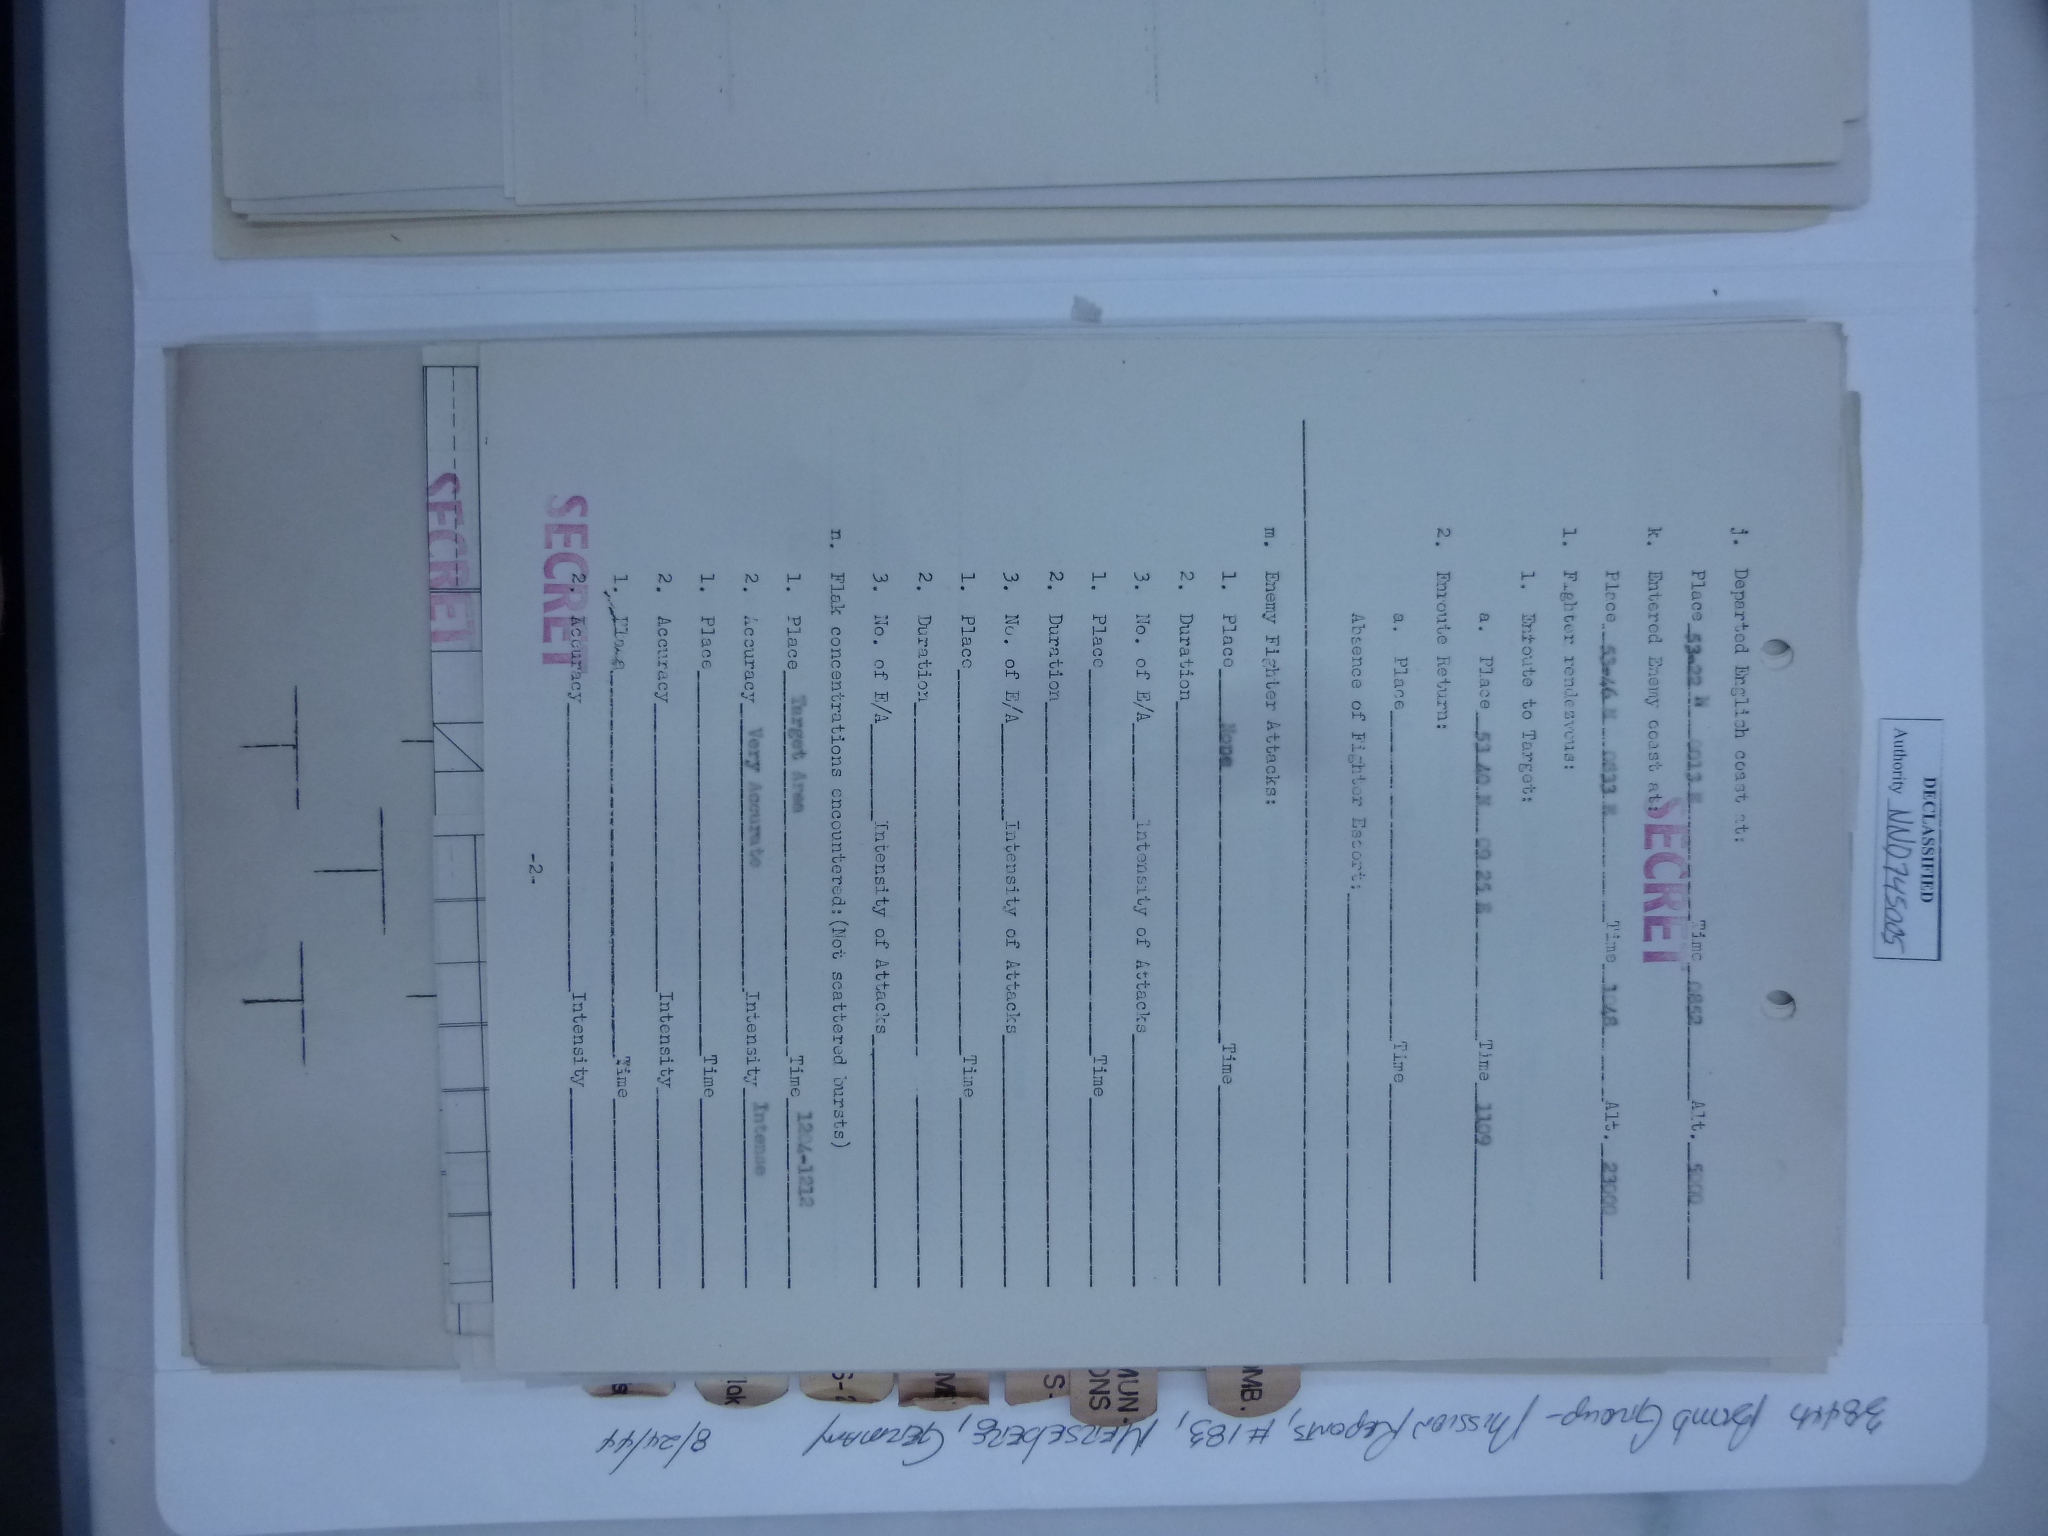 DECLASSIFIED
Authority NND 745005
SECRET
j. Departed English coast at:
Place 53-22 N 0013 E Time 0852 Alt. 5000
k. Entered Enemy coast at:
Place 53-46 N 0833 E Time 1048 Alt. 23000
l. Fighter rendezvous:
1. Entoute to Target:
a. Place 53 40 N 09 25 E Time 1109
2. Enroute Return:
a. Place Time
Absence of Fighter Escort:
m. Enemy Fighter Attacks:
1. Place None Time
2. Duration
3. No. of E/A Intensity of Attacks
1. Place Time
2. Duration
3. No. of E/A Intensity of Attacks
1. Place Time
2. Duration
3. No. of E/A Intensity of Attacks
n. Flak concentrations encountered:(Not scattered bursts)
1. Place Target Area Time -1212
2. Accuracy Very Accurate Intensity Intense
1. Place Time
2. Accuracy Intensity
1. Place Time
2. Accuracy Intensity
SECRET
-2-
SECRET
OMB.
MUN-
ONS
S-
ME
S-2
lak
s
384th Bomb Group - Mission Reports, #183, Merseberg, Germany 8/24/44